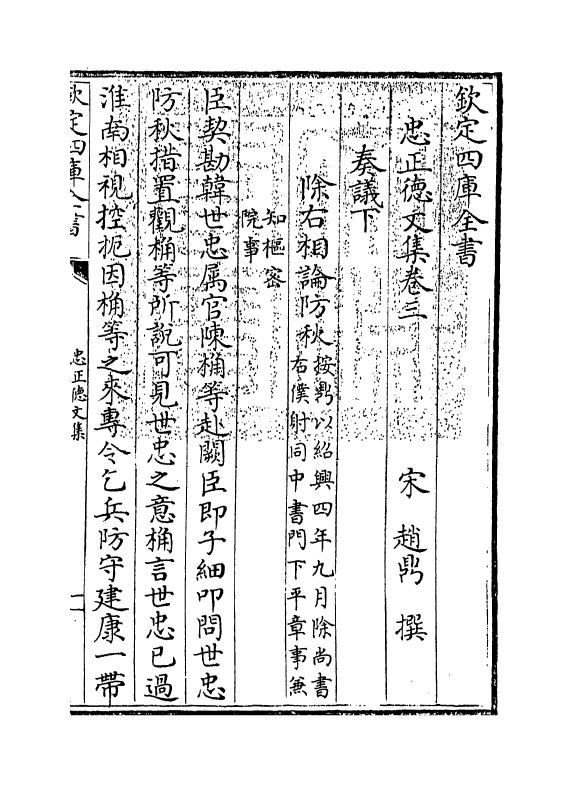 欽定四庫全書
忠正德文集卷三
宋　趙鼎　撰
奏議下
除右相論防秋按鼎以紹興四年九月除尚書
右僕射同中書門下平章事兼
知樞密
院事
臣契勘韓世忠属官陳桷等赴闕臣即子細叩問世忠
防秋措置觀桷等所說可見世忠之意桷言世忠已過
淮南相視控扼因桷等之來專令乞兵防守建康一帶
欽定四庫全書
忠正德文集
一